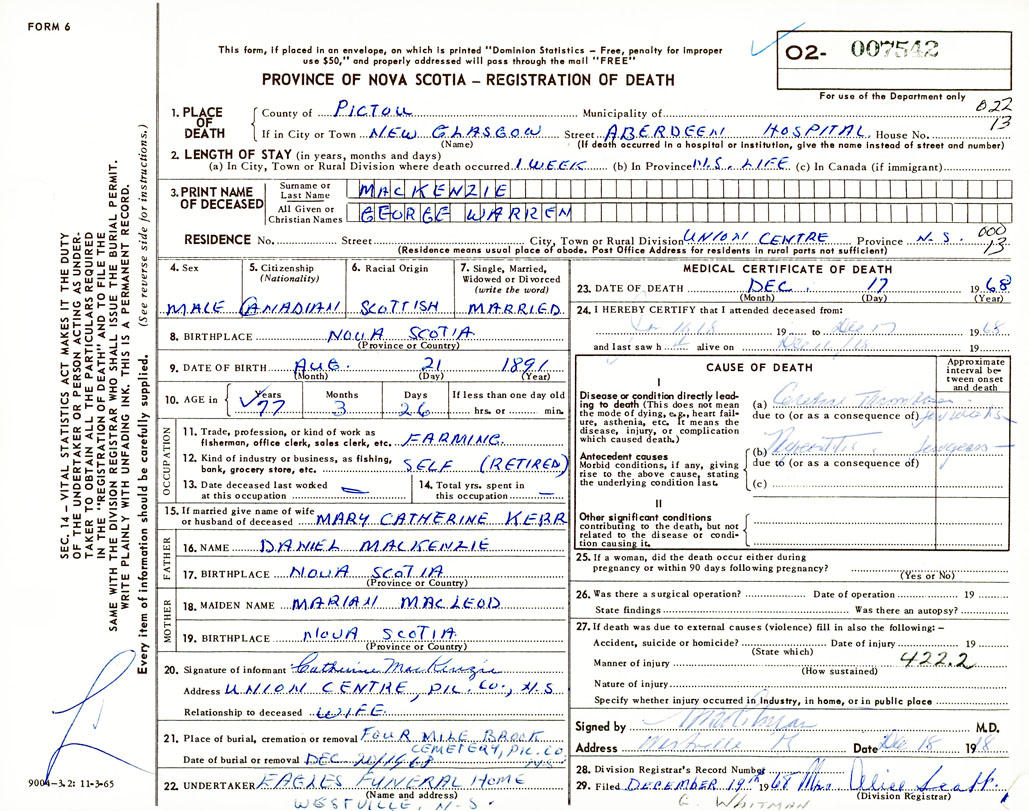 FORM 6
This form, if placed in an envelope, on which is printed "Dominion Statistics – Free, penalty for improper
use $50," and properly addressed will pass through the mail "FREE"
PROVINCE OF NOVA SCOTIA – REGISTRATION OF DEATH
02- 007542
For use of the Department only
022
13
1. PLACE OF DEATH
County of PICTOU Municipality of
If in City or Town NEW GLASGOW Street ABERDEEN HOSPITAL House No.
(Name) (If death occurred in a hospital or institution, give the name instead of street and number)
2. LENGTH OF STAY (in years, months and days)
(a) In City, Town or Rural Division where death occurred 1 WEEK (b) In Province N.S. LIFE (c) In Canada (if immigrant)
3. PRINT NAME OF DECEASED
Surname or Last Name MACKENZIE
All Given or Christian Names GEORGE WARREN
000
13
RESIDENCE No. Street City, Town or Rural Division UNION CENTRE Province N.S.
(Residence means usual place of abode. Post Office Address for residents in rural parts not sufficient)
4. Sex MALE
5. Citizenship (Nationality) CANADIAN
6. Racial Origin SCOTTISH
7. Single, Married, Widowed or Divorced (write the word) MARRIED
8. BIRTHPLACE NOVA SCOTIA
(Province or Country)
9. DATE OF BIRTH AUG. 21 1891
(Month) (Day) (Year)
10. AGE in Years Months Days If less than one day old
77 3 26 hrs. or min.
OCCUPATION
11. Trade, profession, or kind of work as
fisherman, office clerk, sales clerk, etc. FARMING
12. Kind of industry or business, as fishing,
bank, grocery store, etc. SELF (RETIRED)
13. Date deceased last worked at this occupation —
14. Total yrs. spent in this occupation —
15. If married give name of wife
or husband of deceased MARY CATHERINE KERR
FATHER
16. NAME DANIEL MACKENZIE
17. BIRTHPLACE NOVA SCOTIA
(Province or Country)
MOTHER
18. MAIDEN NAME MARIAN MACLEOD
19. BIRTHPLACE NOVA SCOTIA
(Province or Country)
20. Signature of informant Catherine MacKenzie
Address UNION CENTRE, PIC. CO., N.S
Relationship to deceased WIFE
21. Place of burial, cremation or removal FOUR MILE BROOK
CEMETERY, PIC. CO.
N.S.
Date of burial or removal DEC 20/1968
22. UNDERTAKER EAGLES FUNERAL HOME
(Name and address)
WESTVILLE, N.S.
MEDICAL CERTIFICATE OF DEATH
23. DATE OF DEATH DEC. 17 1968
(Month) (Day) (Year)
24. I HEREBY CERTIFY that I attended deceased from:
19 to Dec 17 1968
and last saw h alive on 19
CAUSE OF DEATH
Approximate interval between onset and death
I
Disease or condition directly leading to death (This does not mean
the mode of dying, e.g., heart failure, asthenia, etc. It means the
disease, injury, or complication
which caused death.)
(a) Cerebral Thrombosis
due to (or as a consequence of)
Antecedent causes
Morbid conditions, if any, giving
rise to the above cause, stating
the underlying condition last.
(b)
due to (or as a consequence of)
(c)
II
Other significant conditions
contributing to the death, but not
related to the disease or condition causing it.
25. If a woman, did the death occur either during
pregnancy or within 90 days following pregnancy?
(Yes or No)
26. Was there a surgical operation? Date of operation 19
State findings Was there an autopsy?
27. If death was due to external causes (violence) fill in also the following: –
Accident, suicide or homicide? Date of injury 19
(State which)
Manner of injury 422.2
(How sustained)
Nature of injury
Specify whether injury occurred in industry, in home, or in public place
Signed by M.D.
Address Westville Date Dec 18 1968
28. Division Registrar's Record Number
29. Filed DECEMBER 19th 1968 Mrs. Alice Scott.
(Division Registrar)
E. WHITMAN
SEC. 14 – VITAL STATISTICS ACT MAKES IT THE DUTY
OF THE UNDERTAKER OR PERSON ACTING AS UNDERTAKER TO OBTAIN ALL THE PARTICULARS REQUIRED
IN THE "REGISTRATION OF DEATH" AND TO FILE THE
SAME WITH THE DIVISION REGISTRAR WHO SHALL ISSUE THE BURIAL PERMIT.
WRITE PLAINLY WITH UNFADING INK. THIS IS A PERMANENT RECORD.
Every item of information should be carefully supplied. (See reverse side for instructions.)
9004-3.2: 11-3-65